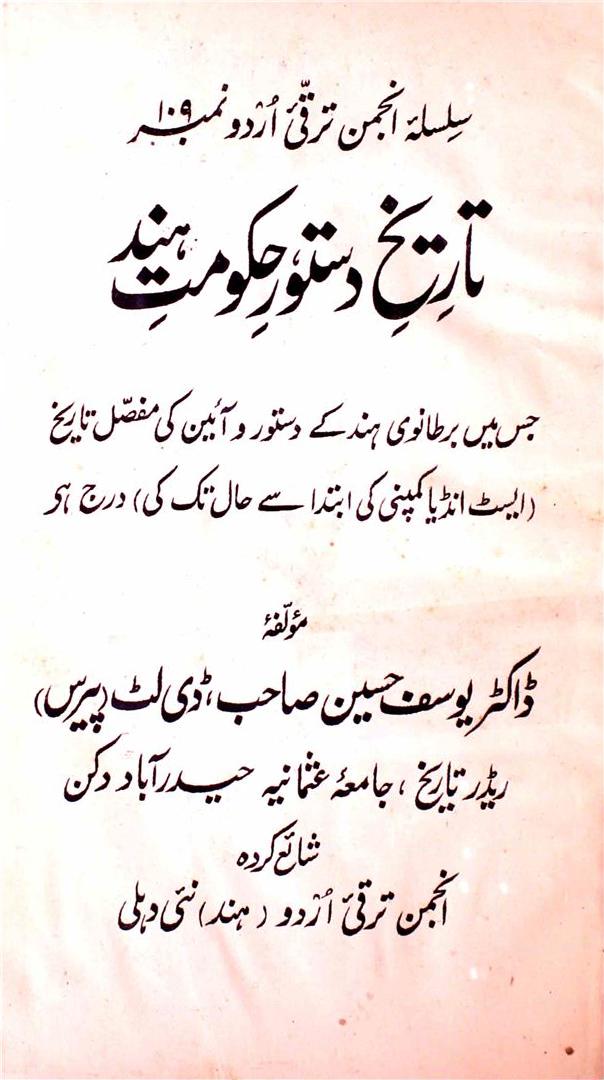 سلسلۂ انجمن ترقیٔ اُردو نمبر ۱۰۹
تاریخِ دستورِ حکومتِ ہند
جس میں برطانوی ہند کے دستور و آئین کی مفصّل تاریخ
(ایسٹ انڈیا کمپنی کی ابتدا سے حال تک کی) درج ہو
مؤلّفۂ
ڈاکٹر یوسف حسین صاحب، ڈی لٹ (پیرس)
ریڈر تاریخ، جامعۂ عثمانیہ حیدرآباد دکن
شائع کردہ
انجمن ترقیٔ اُردو (ہند) نئی دہلی